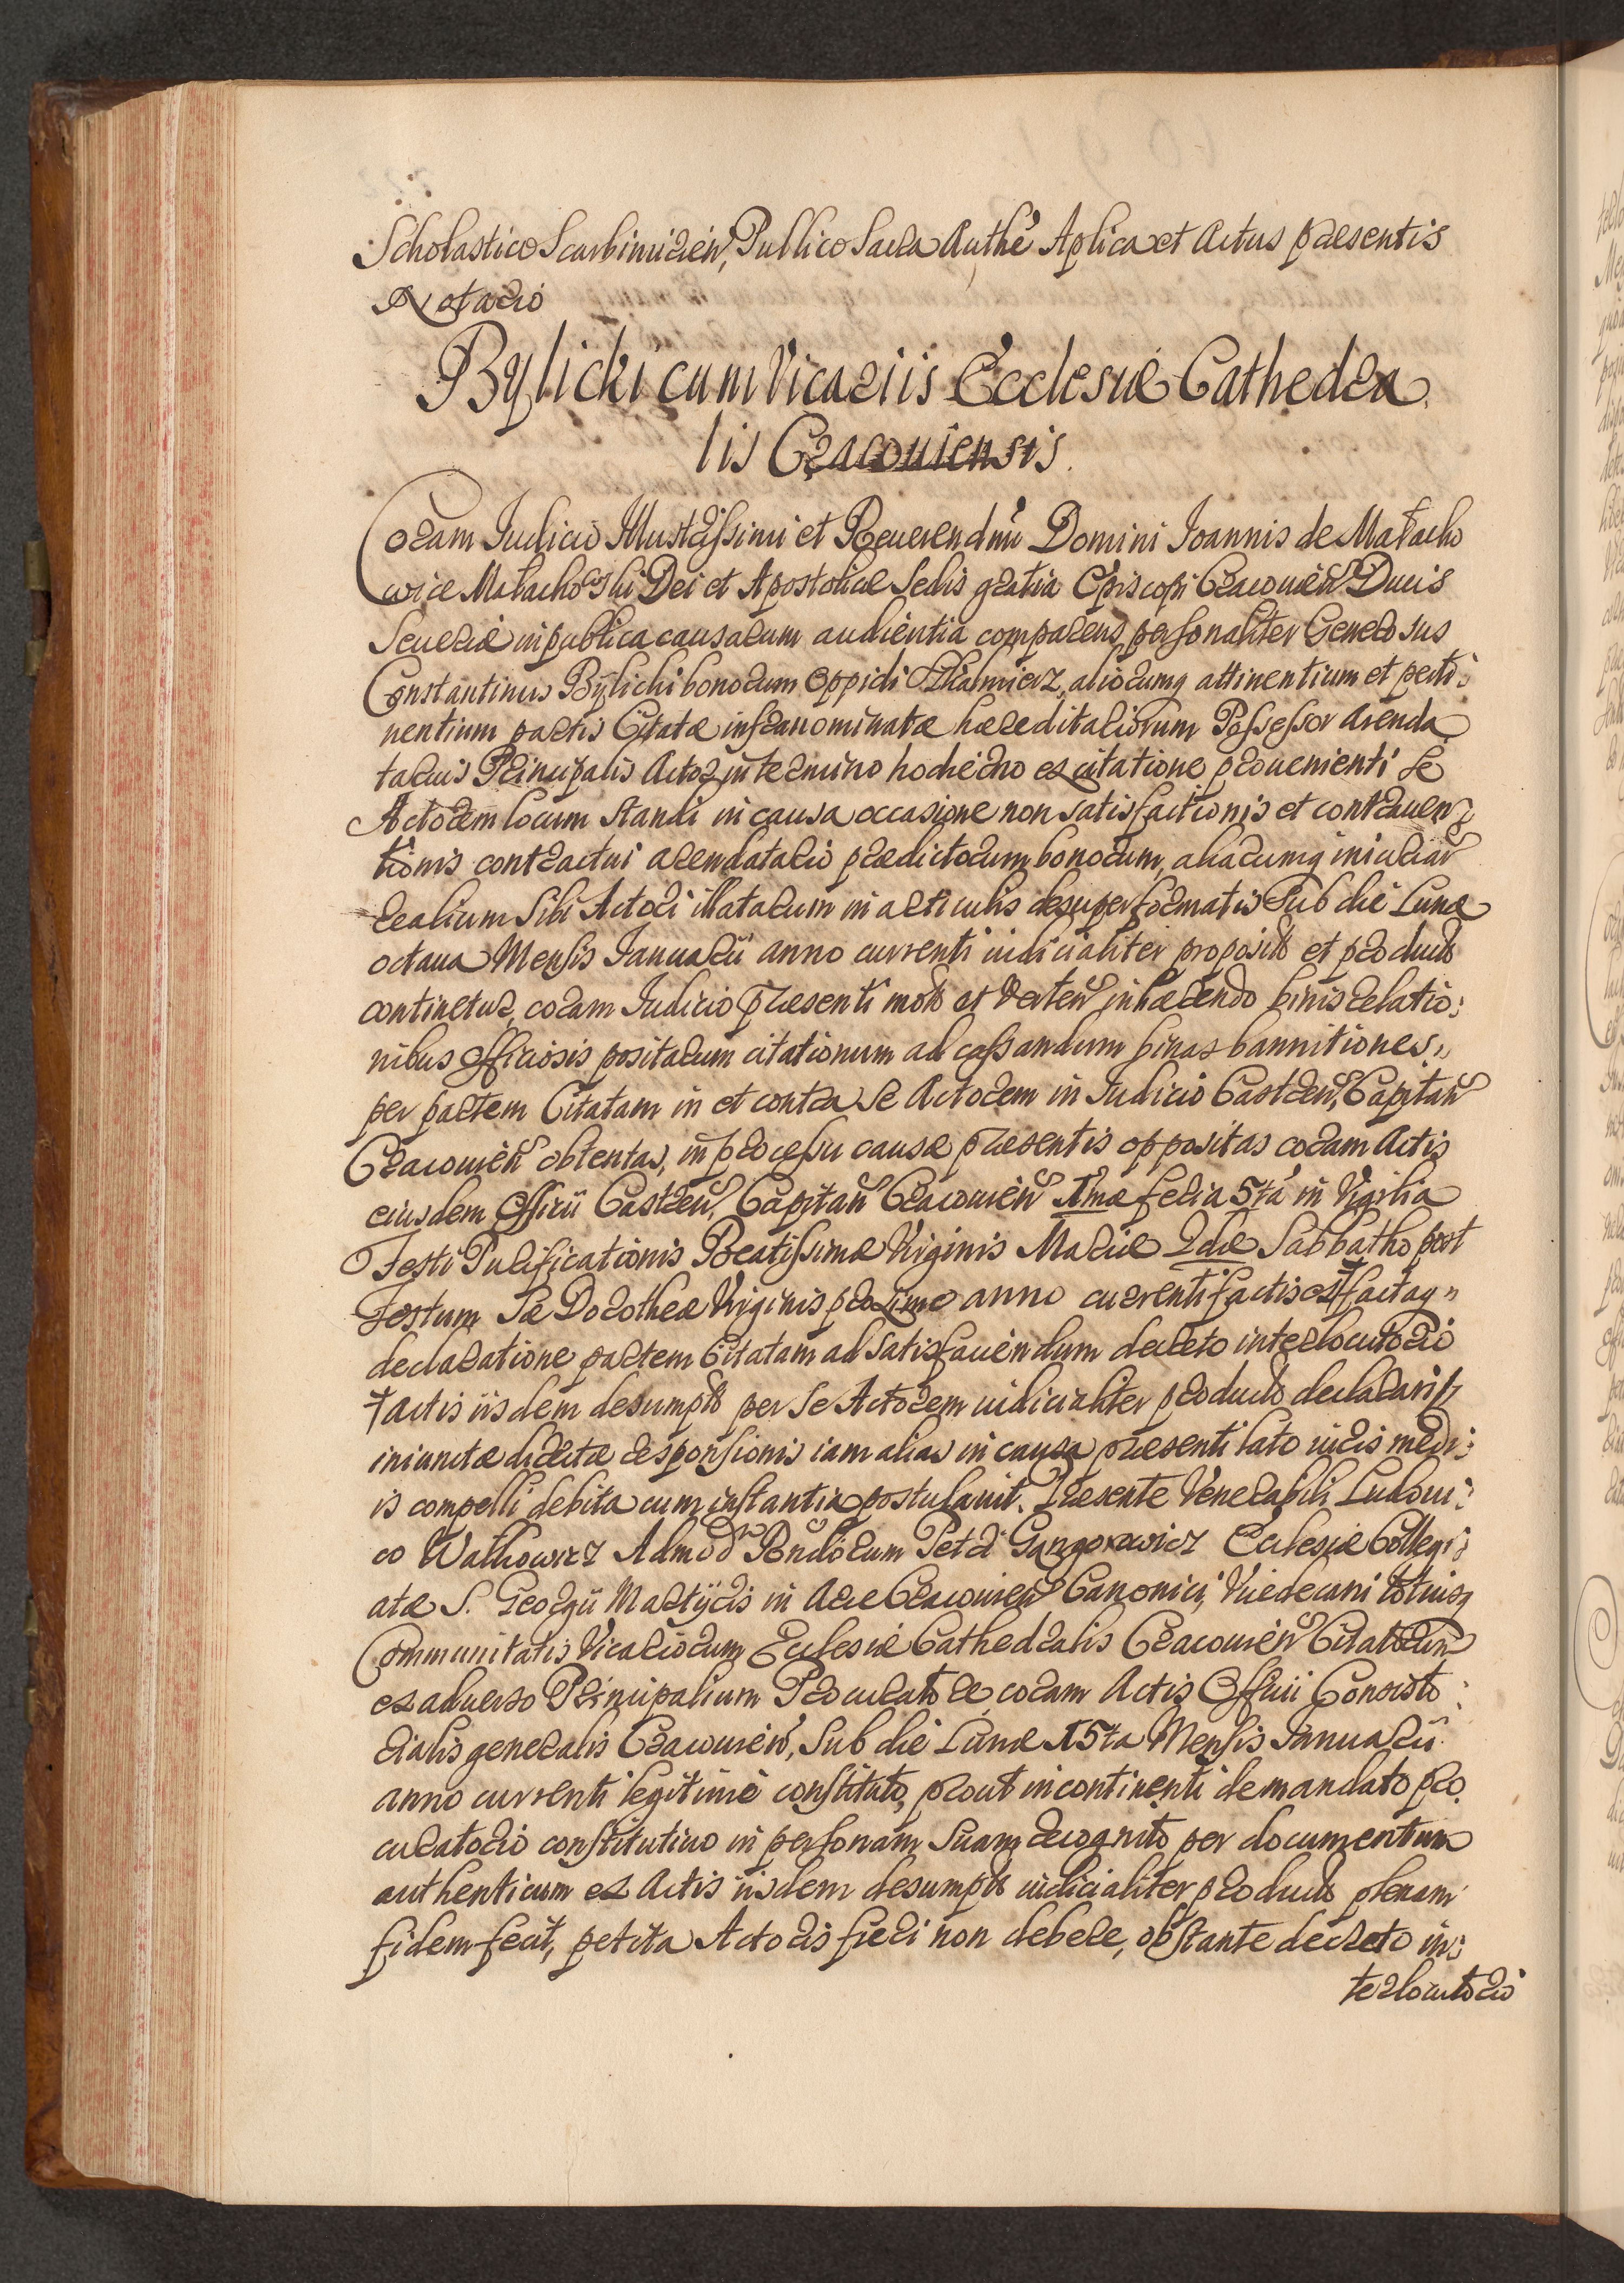 Scholastico Scarbimirien, Publico Sacra Authe Aplica et Actus praesentis
Notario
Bylicki cum Vicariis Ecclesiae Cathedra
lis Cracouiensis.
Coram Iudicio Illustrissimi et Reuerendmi Domini Ioannis de Małacho
wice Małachowski Dei et Apostolicae Sedis gratia Episcopi Cracouien Ducis
Seueriae in publica causarum audientia comparens personaliter Generosus
Constantinus Bylicki bonorum Oppidi Skalmierz, aliorumq attinentium et perti:
nentium partis Citatae infranominatae haereditariorum Possessor Arenda
tarius Principalis Actor in termino hodierno ex citatione prouenienti se
Actorem locum standi in causa occasione non satisfactionis et contrauen:
tionis contractui arendatario praedictorum bonorum, aliarumq iniuriar
realium sibi Actori illatarum in articulis desuper formatis sub die Lunae
octaua Mensis Ianuarii anno currenti iudicialiter proposit et product
continetur, coram Iudicio praesenti mot et verten inhaerendo binis relatio:
nibus officiosis positarum citationum ad cassandum binas bannitiones,
per partem Citatam in et contra se Actorem in Iudicio Castren, Capitan
Cracouien obtentas, in processu causae praesentis oppositas coram Actis
eiusdem Officii Castren, Capitan Cracouien Imae feria 5ta in Vigilia
Festi Purificationis Beatissimae Virginis Mariae 2dae Sabbatho post
Festum Sae Dorotheae Virginis proxime anno currenti factis ex factaq
declaratione partem Citatam ad satisfaciendum decreto interlocutorio
Actis iisdem desumpt per se Actorem iudicialiter product declarari
iniunctae directae responsionis iam alias in causa praesenti lato iuris medi:
is compelli debita cum instantia postulauit. Praesente Venerabili Ludoui:
co Walkowicz Admod Rndorum Petri Gangorowicz Ecclesiae Collegi:
atae S. Georgii Martyris in Arce Cracouien Canonici, Vicedecani totiusq
Communitatis Vicariorum Ecclesiae Cathedralis Cracouien Citatorum
ex aduerso Principalium Procuratore, coram Actis Officii Consisto:
rialis generalis Cracouien, sub die Lunae 15ta Mensis Ianuarii
anno currenti legitime constituto, prout incontinenti de mandato pro
curatorio constitutiuo in personam suam recognito per documentum
authenticum ex Actis iisdem desumpt iudicialiter product plenam
fidem fecit, petita Actoris fieri non debere, obstante decreto in:
terlocutorio